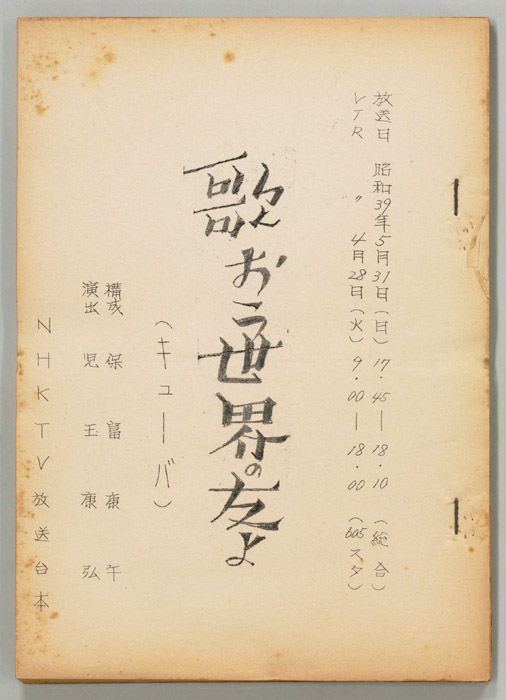 放送日 昭和39年5月31日(日)17.45―18.10(総合)
VTR 〃 4月28日(火)9.00―18.00(605スタ)
歌おう世界の友よ
(キューバ)
構成 保富康午
演出 児玉康弘
NHKTV放送台本